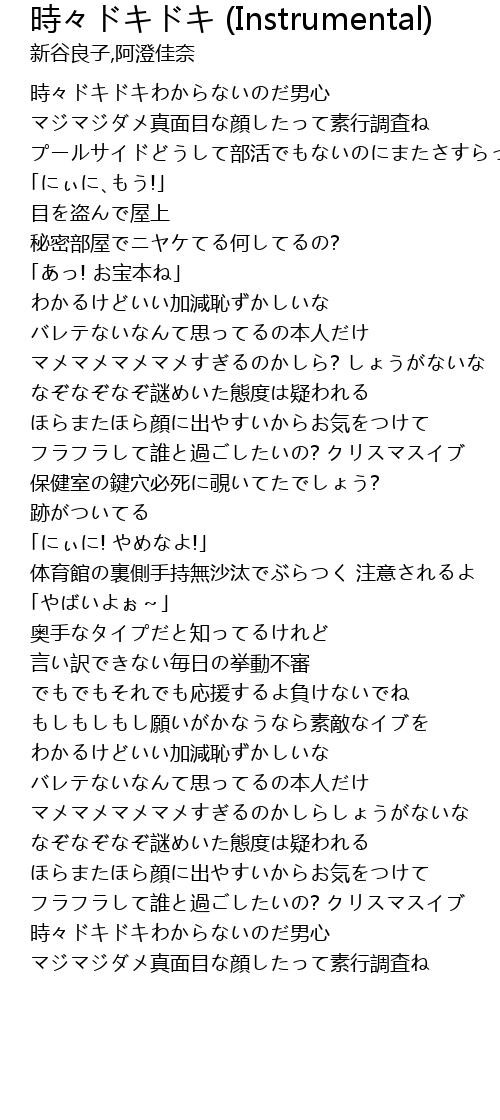 時々ドキドキ (Instrumental)
新谷良子,阿澄佳奈
時々ドキドキわからないのだ男心
マジマジダメ真面目な顔したって素行調査ね
プールサイドどうして部活でもないのにまたさすらっ
「にぃに、もう!」
目を盗んで屋上
秘密部屋でニヤケてる何してるの?
「あっ! お宝本ね」
わかるけどいい加減恥ずかしいな
バレテないなんて思ってるの本人だけ
マメマメマメマメすぎるのかしら? しょうがないな
なぞなぞなぞ謎めいた態度は疑われる
ほらまたほら顔に出やすいからお気をつけて
フラフラして誰と過ごしたいの? クリスマスイブ
保健室の鍵穴必死に覗いてたでしょう?
跡がついてる
「にぃに! やめなよ!」
体育館の裏側手持無沙汰でぶらつく 注意されるよ
「やばいよぉ～」
奥手なタイプだと知ってるけれど
言い訳できない毎日の挙動不審
でもでもそれでも応援するよ負けないでね
もしもしもし願いがかなうなら素敵なイブを
わかるけどいい加減恥ずかしいな
バレテないなんて思ってるの本人だけ
マメマメマメマメすぎるのかしらしょうがないな
なぞなぞなぞ謎めいた態度は疑われる
ほらまたほら顔に出やすいからお気をつけて
フラフラして誰と過ごしたいの? クリスマスイブ
時々ドキドキわからないのだ男心
マジマジダメ真面目な顔したって素行調査ね